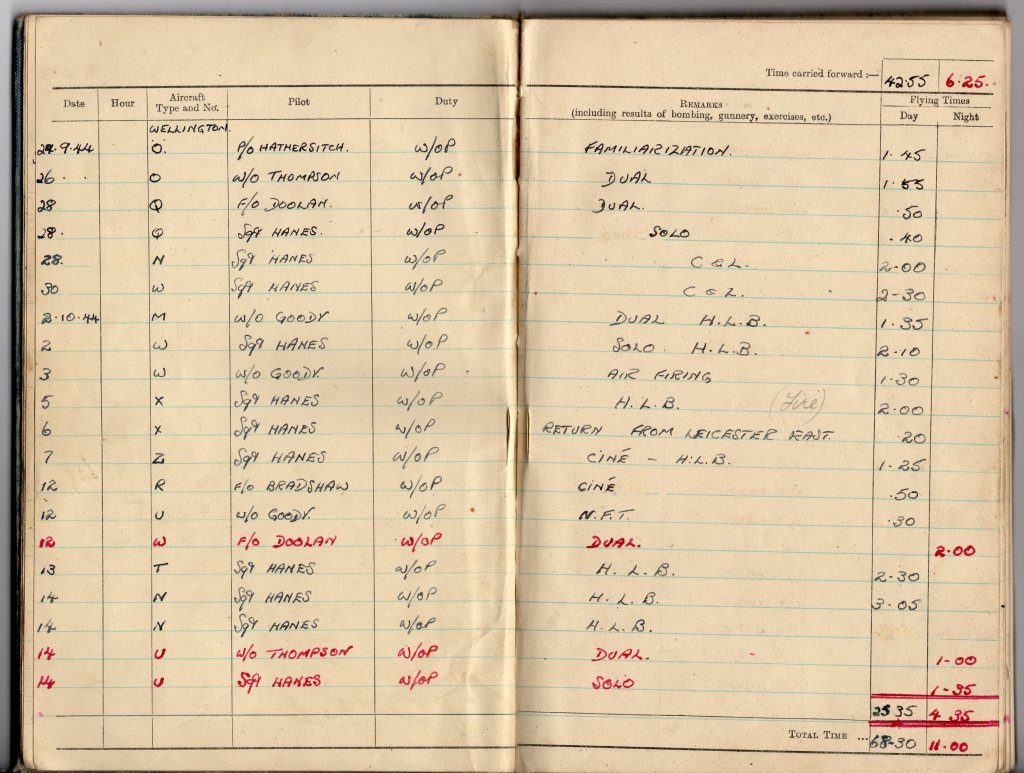 Time carried forward :— 42.55 6.25.
Date Hour Aircraft Type and No. Pilot Duty REMARKS (including results of bombing, gunnery, exercises, etc.) Flying Times Day Night
WELLINGTON.
9.44 O. P/O HATHERSITCH. W/OP FAMILIARIZATION. 1.45
26 . . O W/O THOMPSON W/OP DUAL 1.55
28 Q F/O DOOLAN. W/OP DUAL. .50
28. Q Sgt HANES. W/OP SOLO .40
28. N Sgt HANES W/OP C & L. 2-00
30 W Sgt HANES W/OP C & L. 2-30
2.10.44 M W/O GOODY W/OP DUAL H.L.B. 1.35
2 W Sgt HANES W/OP SOLO. H.L.B. 2.10
3 W W/O GOODY. W/OP AIR FIRING 1.30
5 X Sgt HANES W/OP H.L.B. (Fire) 2.00
6 X Sgt HANES W/OP RETURN FROM LEICESTER EAST. .20
7 Z Sgt HANES W/OP CINÉ - H.L.B. 1.25
12 R F/O BRADSHAW W/OP CINÉ .50
12 U W/O GOODY. W/OP N.F.T. .30
12 W F/O DOOLAN W/OP DUAL. 2.00
13 T Sgt HANES W/OP H.L.B. 2.30
14 N Sgt HANES W/OP H.L.B. 3.05
14 N Sgt HANES W/OP H.L.B.
14 U W/O THOMPSON W/OP DUAL. 1-00
14 U Sgt HANES W/OP SOLO 1-35
25 35 4 35
TOTAL TIME ... 68-30 11.00